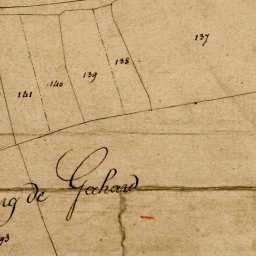 137
138
139
140
141
de Gahard